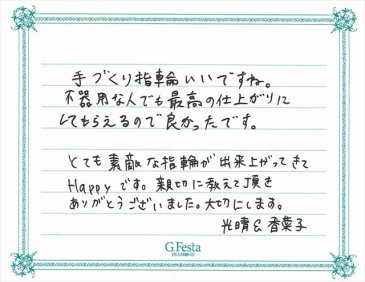 手づくり指輪いいですね。
不器用な人でも最高の仕上がりに
してもらえるので良かったです。
とても素敵な指輪が出来上がってきて
Happyです。親切に教えて頂き
ありがとうございました。大切にします。
光晴 & 香菜子
G.Festa
DIAMOND